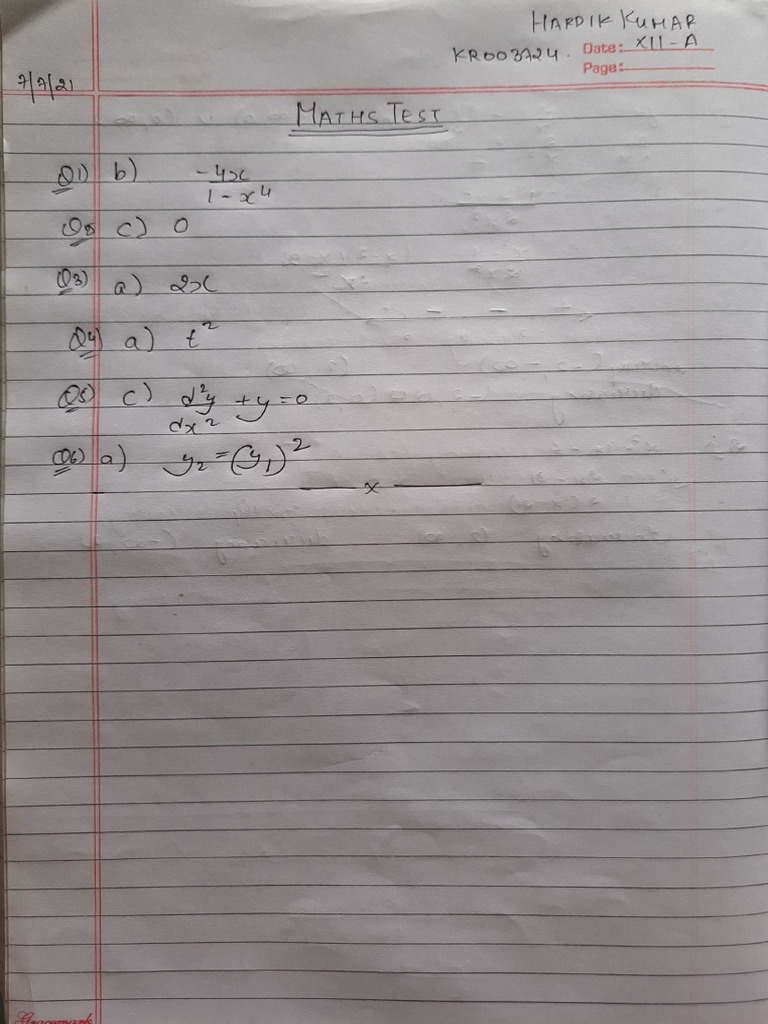 HARDIK KUMAR
KR003724. Date: XII-A
Page:
7/7/21
MATHS TEST
Q1) b) -4x / 1-x⁴
c) 0
Q3) a) 2x
Q4) a) t²
Q5) c) d²y/dx² + y = 0
Q6) a) y₂ = (y₁)²
x